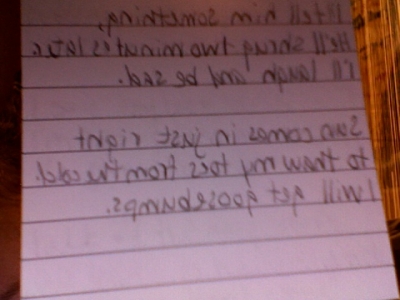 I'll tell him something.
He'll shrug two minutes later.
I'll laugh and be sad.
Sun comes in just right
to thaw my toes from the cold.
I will get goosebumps.